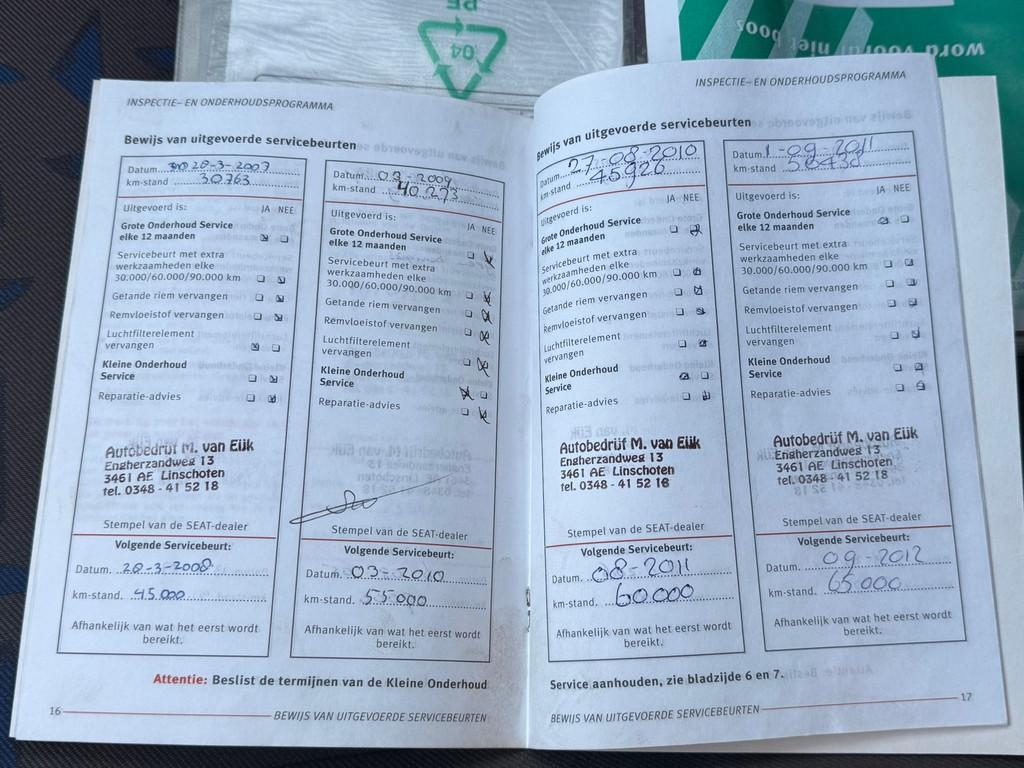 04
PE
word vooral niet boos
INSPECTIE- EN ONDERHOUDSPROGRAMMA
Bewijs van uitgevoerde servicebeurten
Datum. 28-3-2007
km-stand 30763
Uitgevoerd is: JA NEE
Grote Onderhoud Service
elke 12 maanden
Servicebeurt met extra
werkzaamheden elke
30.000/60.000/90.000 km
Getande riem vervangen
Remvloeistof vervangen
Luchtfilterelement
vervangen
Kleine Onderhoud
Service
Reparatie-advies
Autobedrijf M. van Eijk
Engherzandweg 13
3461 AE Linschoten
tel. 0348 - 41 52 18
Stempel van de SEAT-dealer
Volgende Servicebeurt:
Datum. 28-3-2008
km-stand. 45.000
Afhankelijk van wat het eerst wordt
bereikt.
Datum. 03-2009
km-stand 40.273
Uitgevoerd is: JA NEE
Grote Onderhoud Service
elke 12 maanden
Servicebeurt met extra
werkzaamheden elke
30.000/60.000/90.000 km
Getande riem vervangen
Remvloeistof vervangen
Luchtfilterelement
vervangen
Kleine Onderhoud
Service
Reparatie-advies
Stempel van de SEAT-dealer
Volgende Servicebeurt:
Datum. 03-2010
km-stand. 55.000
Afhankelijk van wat het eerst wordt
bereikt.
Attentie: Beslist de termijnen van de Kleine Onderhoud
16
BEWIJS VAN UITGEVOERDE SERVICEBEURTEN
INSPECTIE- EN ONDERHOUDSPROGRAMMA
Bewijs van uitgevoerde servicebeurten
Datum. 27-08-2010
km-stand 45926
Uitgevoerd is: JA NEE
Grote Onderhoud Service
elke 12 maanden
Servicebeurt met extra
werkzaamheden elke
30.000/60.000/90.000 km
Getande riem vervangen
Remvloeistof vervangen
Luchtfilterelement
vervangen
Kleine Onderhoud
Service
Reparatie-advies
Autobedrijf M. van Eijk
Engherzandweg 13
3461 AE Linschoten
tel. 0348 - 41 52 18
Stempel van de SEAT-dealer
Volgende Servicebeurt:
Datum. 08-2011
km-stand. 60.000
Afhankelijk van wat het eerst wordt
bereikt.
Datum. 1-09-2011
km-stand
Uitgevoerd is: JA NEE
Grote Onderhoud Service
elke 12 maanden
Servicebeurt met extra
werkzaamheden elke
30.000/60.000/90.000 km
Getande riem vervangen
Remvloeistof vervangen
Luchtfilterelement
vervangen
Kleine Onderhoud
Service
Reparatie-advies
Autobedrijf M. van Eijk
Engherzandweg 13
3461 AE Linschoten
tel. 0348 - 41 52 18
Stempel van de SEAT-dealer
Volgende Servicebeurt:
Datum. 09-2012
km-stand. 65.000
Afhankelijk van wat het eerst wordt
bereikt.
Service aanhouden, zie bladzijde 6 en 7.
BEWIJS VAN UITGEVOERDE SERVICEBEURTEN
17